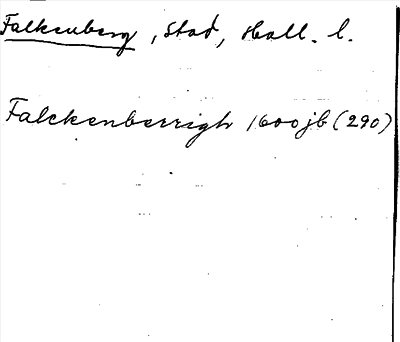 Falkenberg, Stad, Hall. l.
Falckenberrigh 1600 jb (290)